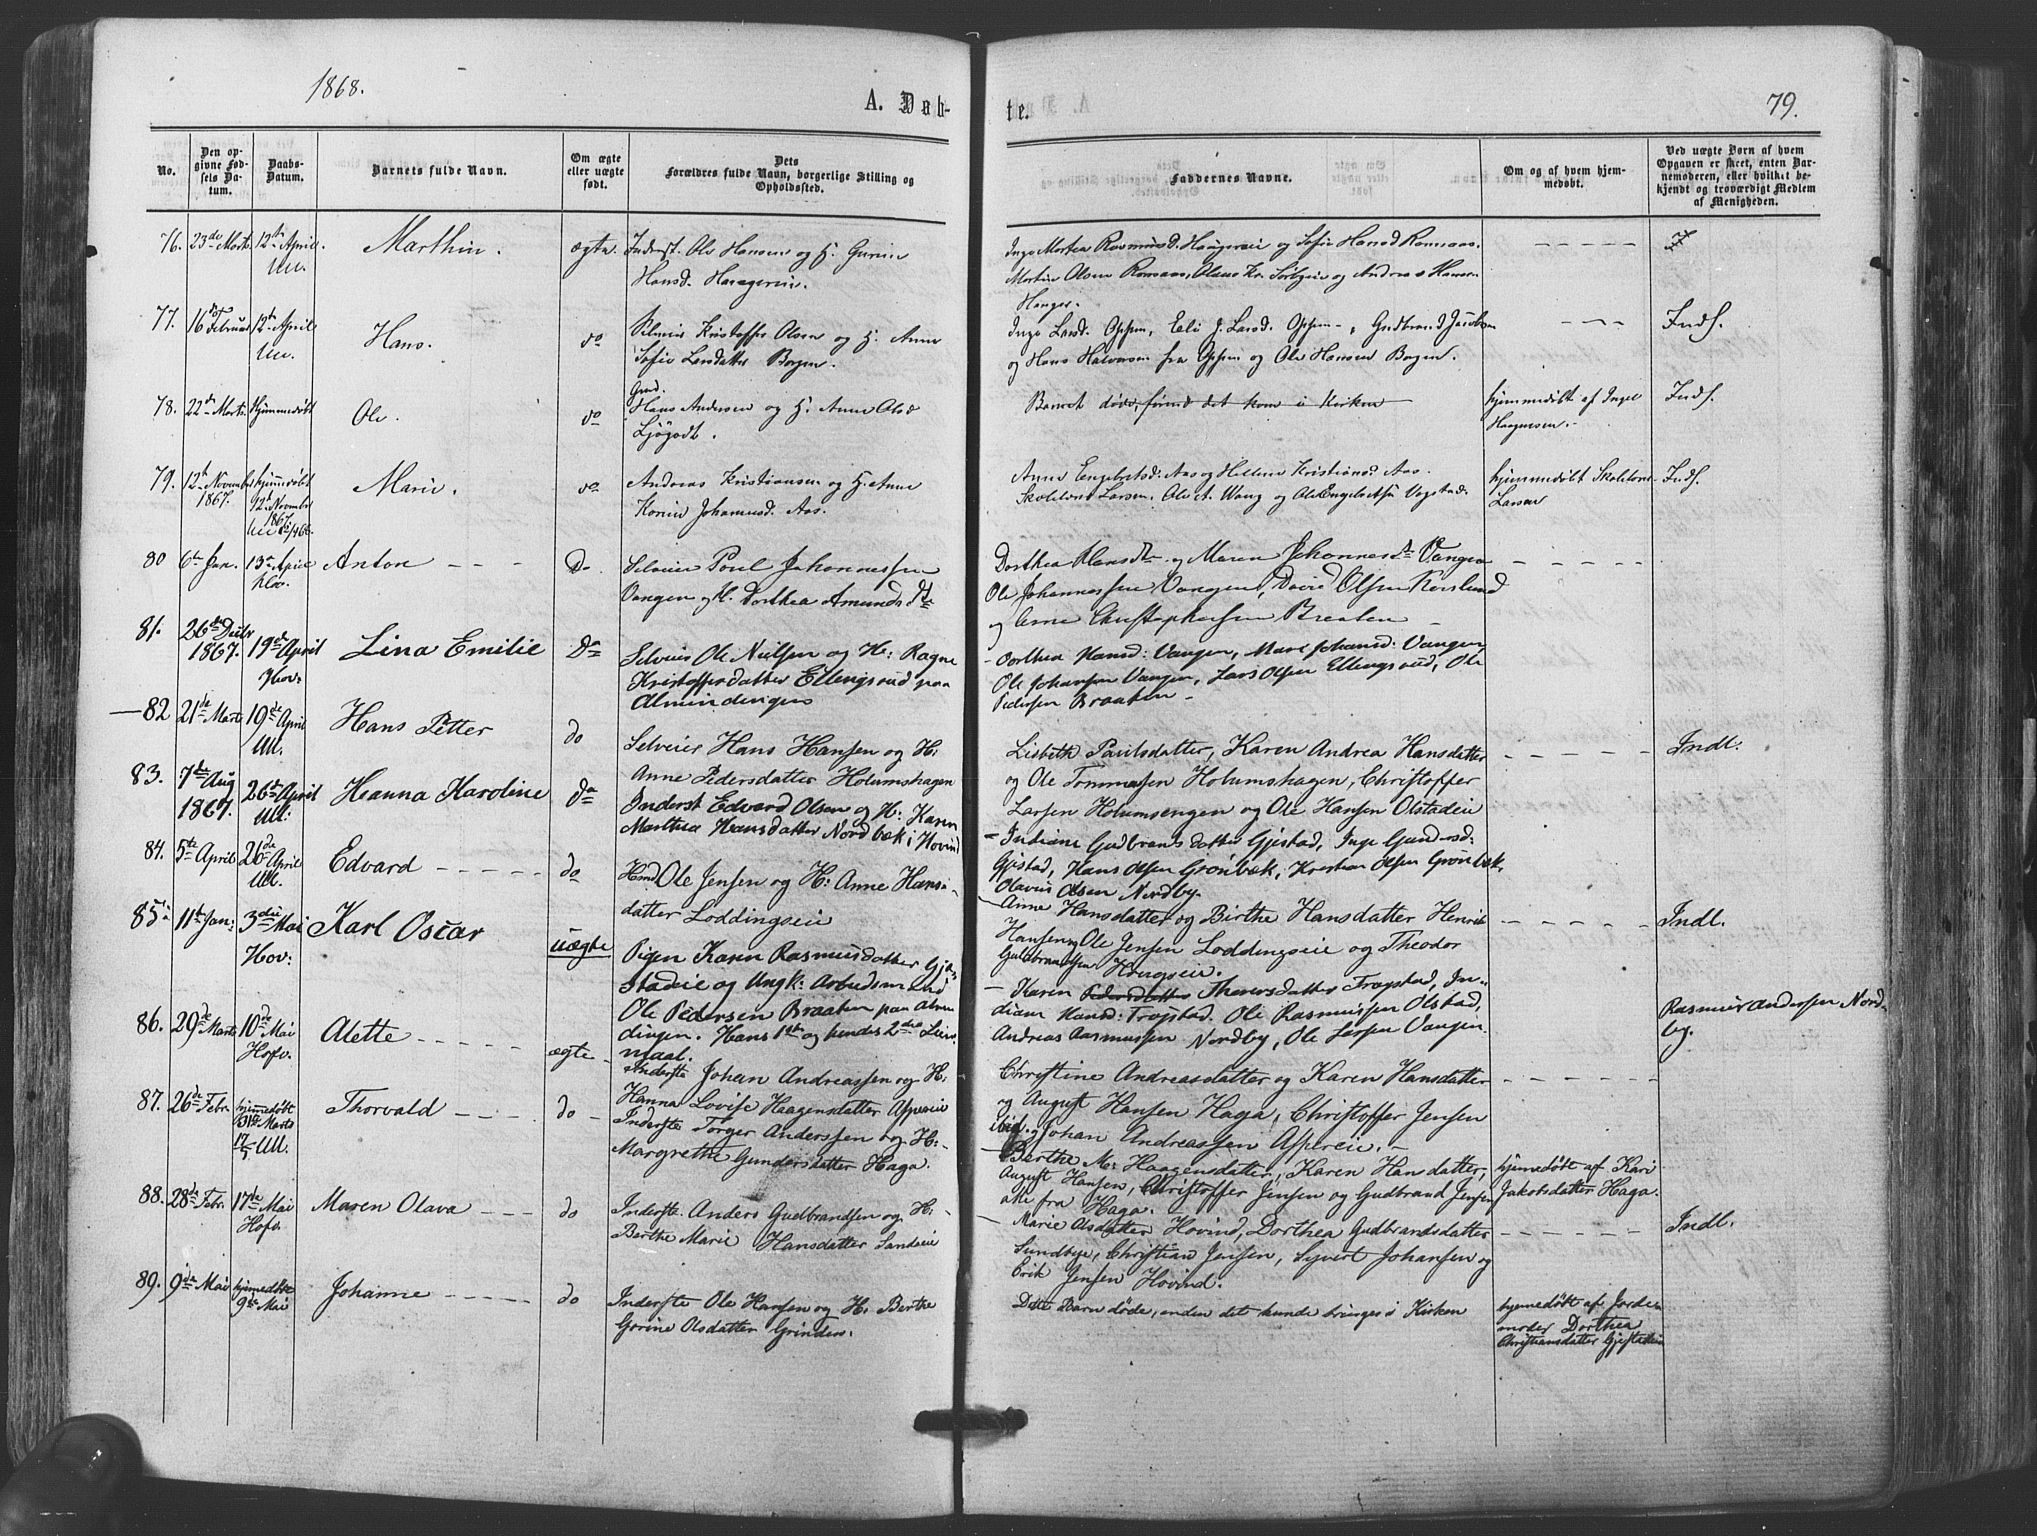 1868.
A. Døb-
te.
79.
No.
Den opgivne Fødsels Datum.
Daabs-Datum.
Barnets fulde Navn.
Om ægte eller uægte født.
Dets Forældres fulde Navn, borgerlige Stilling og Opholdssted.
Faddernes Navne.
Om og af hvem hjemmedøbt.
Ved uægte Børn af hvem Opgaven er skeet, enten Barnemoderen, eller hvilket bekjendt og troværdigt Medlem af Menigheden.
76. 23de Marts 12te April Ull. Marthin. ægte.
Inderst. Ole Hansen og H. Gurine
Hansd.
Inge Martea Rasmusd. og Sofie Hansd
Martin Olsen og Andreas Hansen
77. 16de Februar 12te April Ull. Hans. do
Kristoffer Olsen og H. Anne
Sofie Larsdatter Borgen.
Inge Larsd. Oppen, Eli J. Larsd. Oppen, Gudbrand Jacobsen
og Hans Halvorsen fra Oppen og Ole Hansen Borgen.
Indf.
78. 22de Marts Hjemmedøbt Ole. do
Grd.
Hans Andersen og H. Anne Olsd
Ljøgodt.
Barnet døde, førend det kom i Kirken
hjemmedøbt af Ingel
Haagensen.
Indf.
79. 12te Novembr 1867. hjemmedøbt 12te Novembr 1867 Marie. do
Andreas Kristiansen og H. Anne
Karine Johannesd. Aas.
Anne Engebretsd. Aas og Hellene Kristiansd Aas.
Larsen, Ole A. Wang og Ole
hjemmedøbt
Larsen
Indf.
80 6te Jan. 13de April Anton Do.
Selveier Poul Johannessen
Vangen og H. Dorthea Amundsdtr
Dorthea Hansdtr og Maren Johannesdtr Vangen
Ole Johannessen Vangen, David Olsen
og Arne Christophersen Braaten
81. 26de Decbr 1867. 19de April Hov: Lina Emilie Do
Selveier Ole Nielsen og H: Ragne
Kristoffersdatter Ellengsrud paa
Almindingen
Dorthea Hansd: Vangen, Mari Johansd: Vangen,
Ole Johansen Vangen, Lars Olsen Ellengsrud, Ole
Pedersen Braaten
82 21de Marts 19de April Ull. Hans Petter do
Selveier Hans Hansen og H:
Anne Pedersdatter Holumshagen
Lisbeth Paulsdatter, Karen Andrea Hansdatter
og Ole Tommassen Holumshagen, Christoffer
Larsen Holumsengen og Ole Hansen Olstadeie
Indl.
83. 7de Aug 1867. 26de April Ull: Hanna Karoline do
Inderst Edvard Olsen og H: Karen
Marthea Hansdatter Nordbæk i Hovind
Indiane Gudbrandsdatter Gjestad, Inge
Gjestad, Hans Olsen Grønbæk, Kristian Olsen Grønbæk,
Olavus Olsen Nordby.
84. 5te April 26de April Ull. Edvard do
Hmd Ole Jensen og H: Anne Hans-
datter Loddingseie
Anne Hansdatter og Birthe Hansdatter Henrik
Hansen og Ole Jensen Loddingseie og Theodor
Gulbrandsen Haugseie.
Indl.
85. 11te Jan: 3die Mai Hov: Karl Oscar uægte
Pigen Karen Rasmusdatter Gje-
stadeie og Ungk: Arbeidsmand
Ole Pedersen Braaten paa Almin
dingen. Hans 1ste og hendes 2det Leier-
maal.
Karen Pedersdatter Thorersdatter Trogstad, In-
diane Hansd: Trogstad, Ole Rasmussen Olstad,
Andreas Rasmussen Nordby, Ole Larsen Vangen.
Rasmus Andersen Nord-
by.
86. 29de Marts 10de Mai Hofv. Alette ægte
Inderste Johan Andreassen og H:
Hanna Lovise Haagensdatter Aspereie
Christine Andreasdatter og Karen Hansdatter
og August Hansen Haga, Christoffer Jensen
ibid. og Johan Andreassen Aspereie.
87. 26de Febr. hjemmedøbt 31te Marts 17/5 Ull. Thorvald do
Inderste Torger Anderssen og H:
Margrethe Gundersdatter Haga.
Berthe M: Haagensdatter, Karen Hansdatter,
August Hansen, Christoffer Jensen og Gudbrand Jensen
alle fra Haga.
hjemmedøbt af Kari
Jakobsdatter Haga.
88. 28de Febr. 17de Mai Hofv. Maren Olava do
Inderste Anders Gudbrandsen og H:
Berthe Marie Hansdatter Sandeie
Marie Olsdatter Hovind, Dorthea Gudbrandsdatter
Sundbye, Christian Jensen, Syvert Johansen og
Erik Jensen Hovind.
Indl.
89. 9de Mai hjemmedøbt 9de Mai Johanne do
Inderste Ole Hansen og H: Berthe
Gorine Olsdatter Grinder.
Dette Barn døde, inden det kunde bringes i Kirken
hjemmedøbt af Jorde-
moder Dorthea
Christiansdatter Gjestadeie